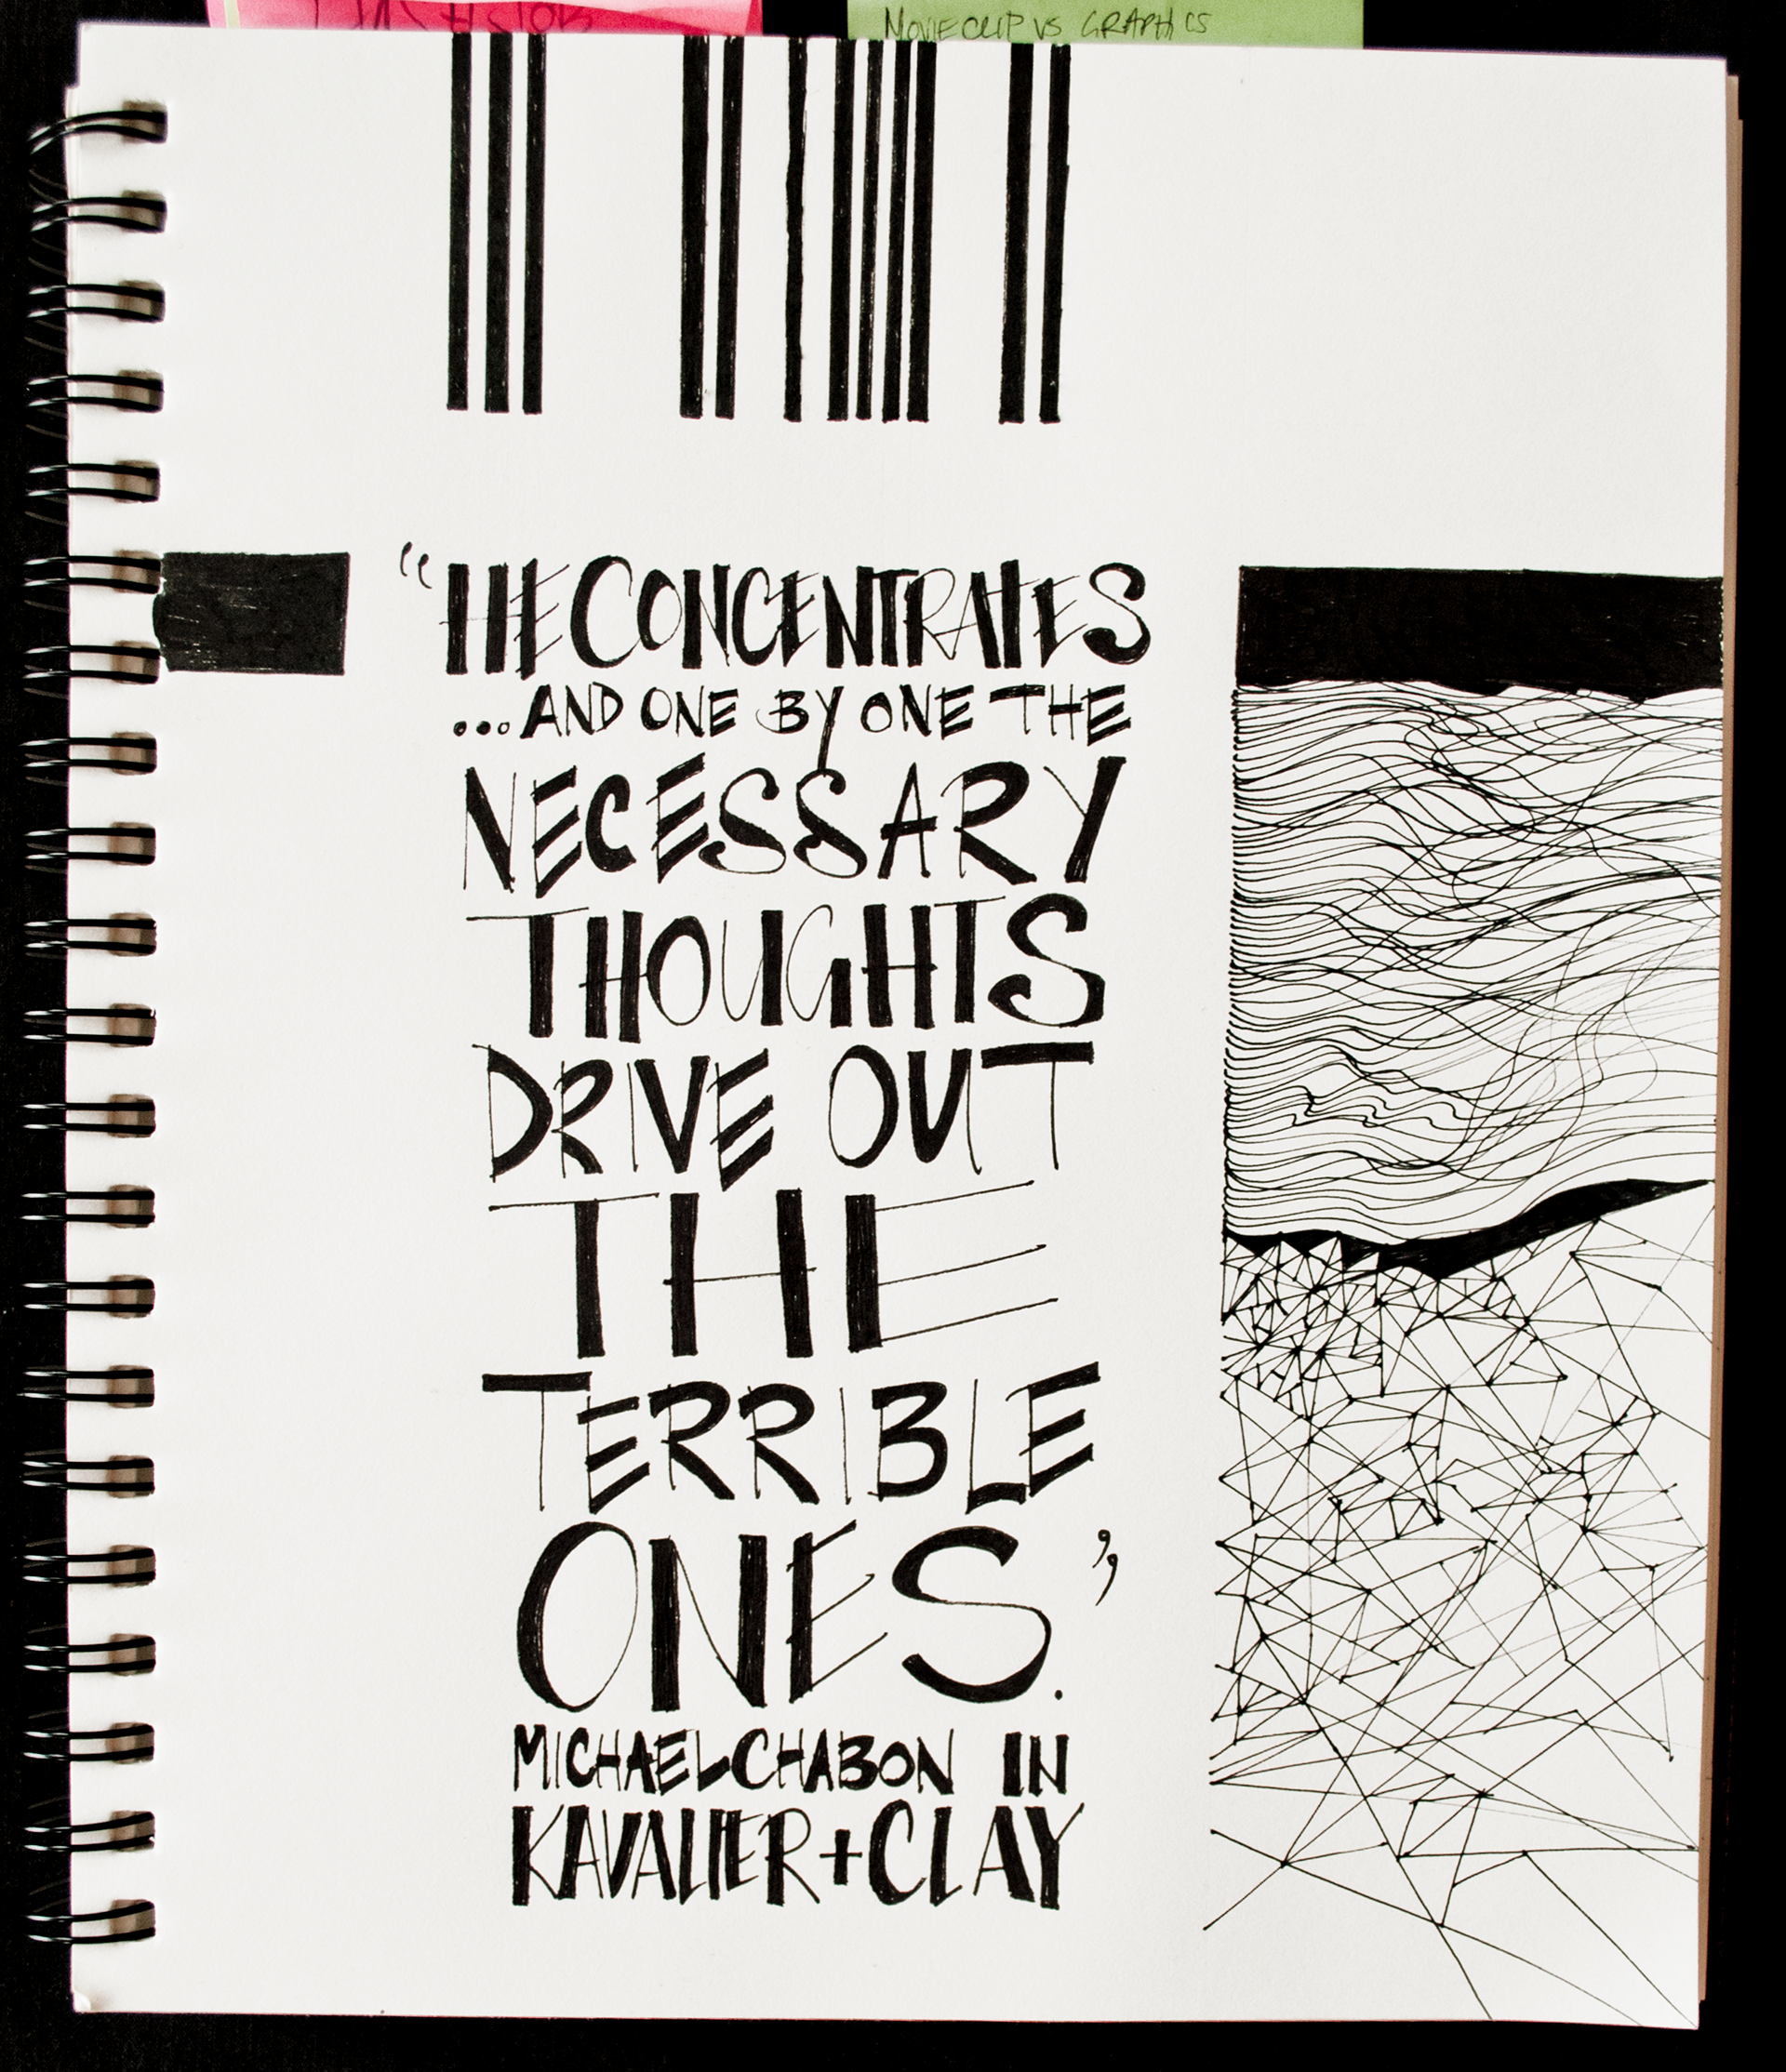 MOVIECLIP VS GRAPHICS
“HE CONCENTRATES
...AND ONE BY ONE THE
NECESSARY
THOUGHTS
DRIVE OUT
THE
TERRIBLE
ONES.”
MICHAEL CHABON IN
KAVALIER + CLAY